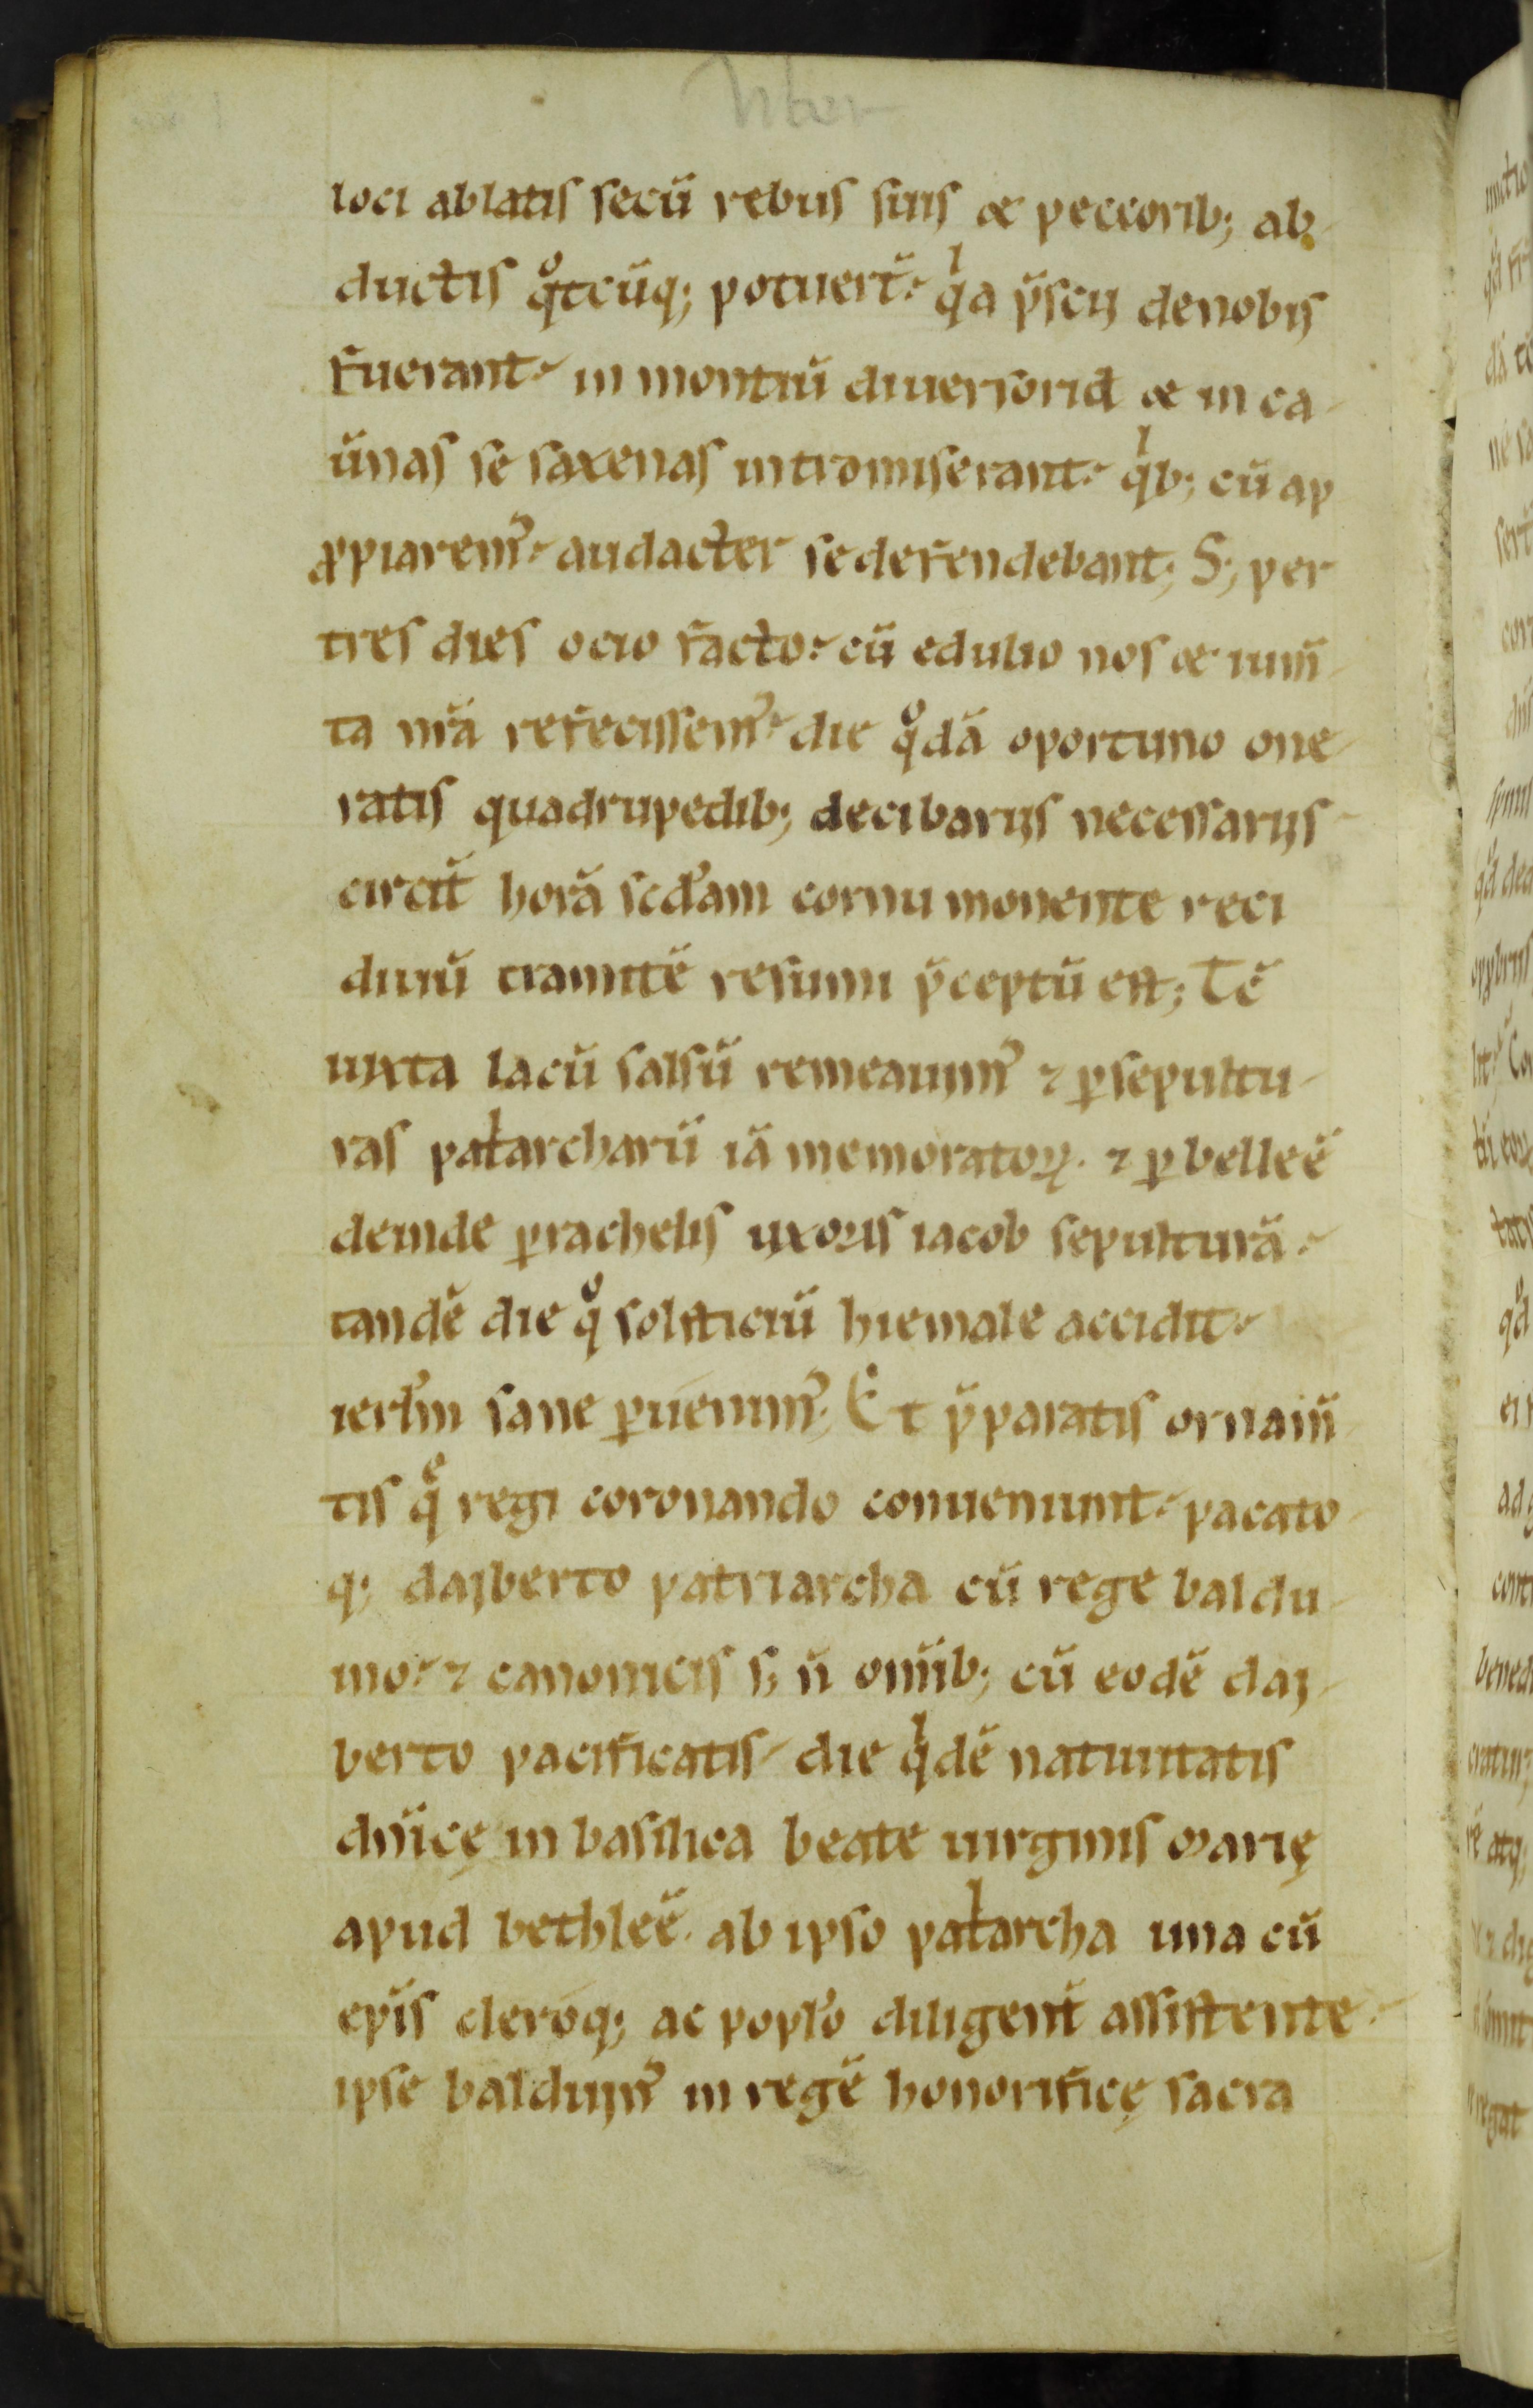 liber
loci ablatis secū rebus suis & peccorib; ab
ductis qͦtcūq; potuert̄. qⁱa p̄scij de nobis
fuerant. in montiū diuersoria & in ca
ūnas se saxenas intromiserant. qⁱb; cū ap
ꝓpiarem᷒. audacter se defendebant; S; per
tres dies ocio facto. cū edulio nos & ium̄
ta nr̄a refecissem᷒. die qͦdā oportuno one
ratis quadrupedib; de cibarijs necessarijs
circit̄ horā scd̓am cornu monente reci
diuū tramitē resumi p̄ceptū est; Tē
iuxta lacū salsū remeauim᷒ ⁊ ꝑ sepultu
ras patⁱarcharū iā memoratoꝝ. ⁊ ꝑ belleē
deinde ꝑ rachelis uxoris iacob sepulturā.
tandē die qͦ solsticiū hiemale accidit.
ierl̓m sane ꝑuenim᷒; Et p̄paratis ornam̄
tis qͤ regi coronando conueniunt. pacato
q; dajberto patriarcha cū rege baldu
ino. ⁊ canonicis s; n̄ om̄ib; cū eodē daj
berto pacificatis. die qⁱdē natiuitatis
dn̄icę in basilica beate uirginis marię
apud bethleē. ab ipso patⁱarcha una cū
ep̄is cleroq; ac popl̓o diligent̄ assistente.
ipse balduin᷒ in regē honorificę sacra